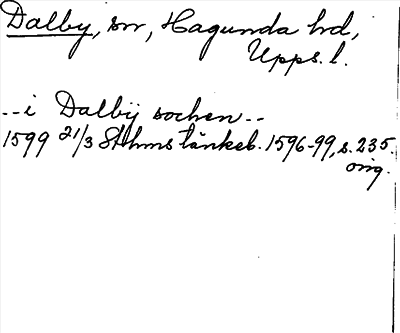 Dalby, sn, Hagunda hd,
Upps. l.
-- i Dalbÿ sochen --
1599 21/3 Sthms tänkeb. 1596-99, s. 235.
orig.